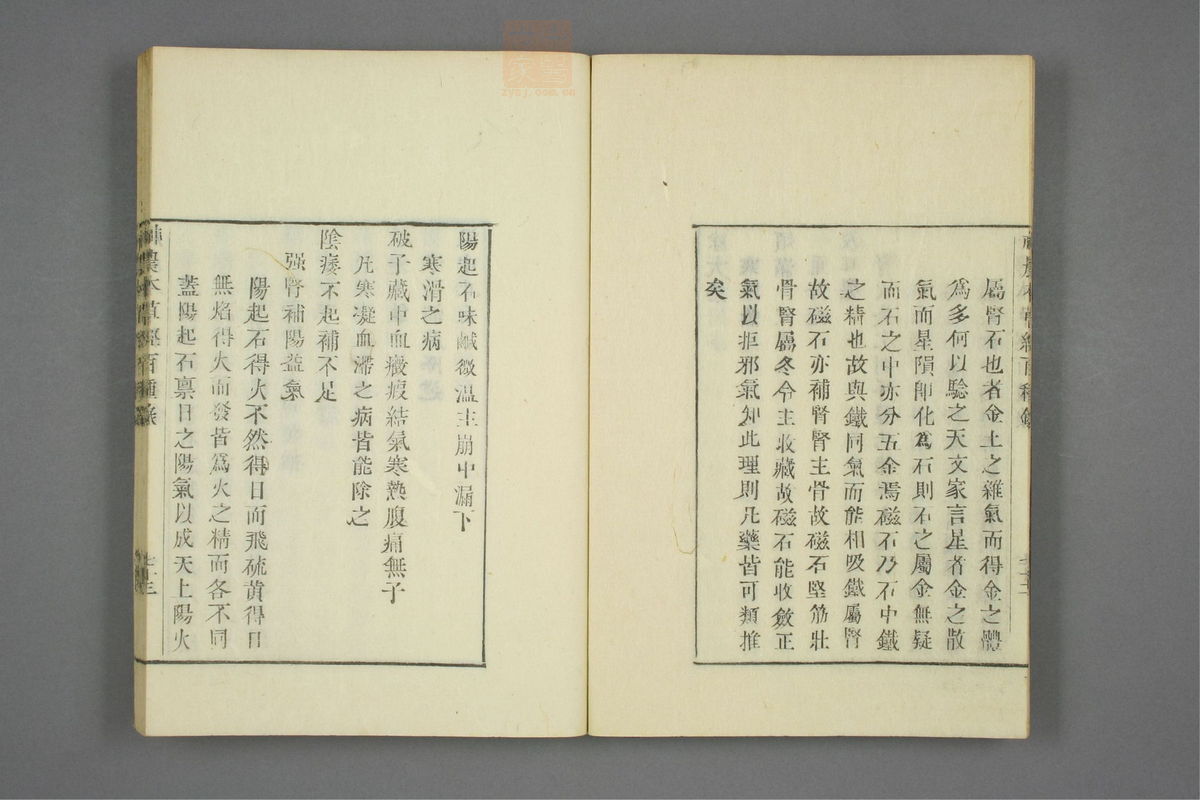 屬腎石也者金土之雜氣而得金之體
爲多何以驗之天文家言星者金之散
氣而星隕卽化爲石則石之屬金無疑
而石之中亦分五金焉磁石乃石中鐵
之精也故與鐵同氣而能相吸鐵屬腎
故磁石亦補腎腎主骨故磁石堅筋壯
骨腎屬冬令主收藏故磁石能收斂正
氣以拒邪氣知此理則凡藥皆可類推
矣
陽起石味鹹微溫主崩中漏下
寒滑之病
破子藏中血癥瘕結氣寒熱腹痛無子
凡寒凝血滯之病皆能除之
陰痿不起補不足
强腎補陽益氣
陽起石得火不然得日而飛硫黃得日
無焰得火而發皆爲火之精而各不同
蓋陽起石禀日之陽氣以成天上陽火
神農本草經百種錄
七十三
zysj.com.cn